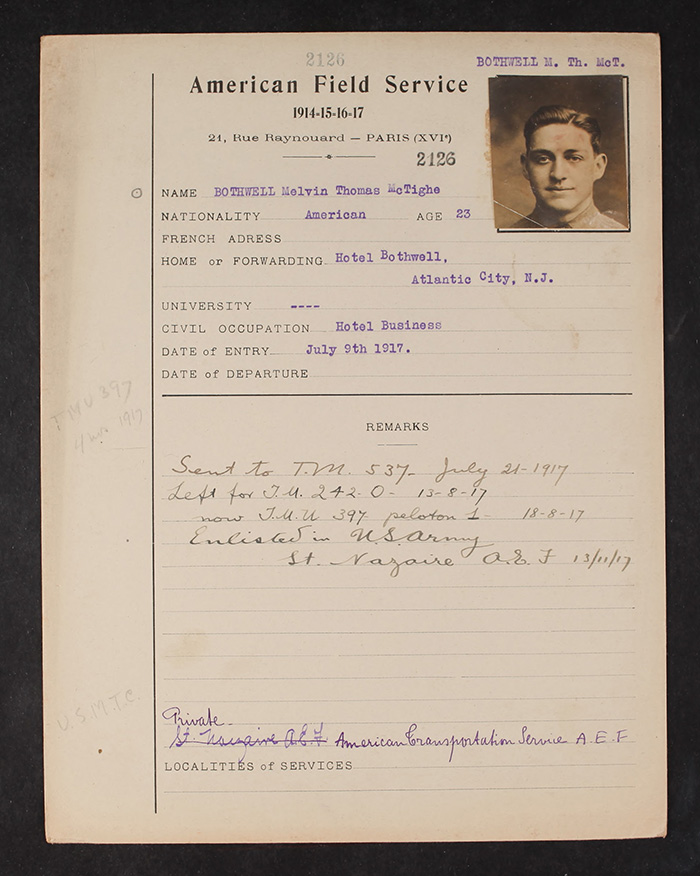 2126
BOTHWELL M. Th. McT.
American Field Service
1914-15-16-17
21, Rue Raynouard — PARIS (XVIe)
2126
NAME BOTHWELL Melvin Thomas McTighe
NATIONALITY American AGE 23
FRENCH ADRESS
HOME or FORWARDING Hotel Bothwell,
Atlantic City, N.J.
UNIVERSITY ----
CIVIL OCCUPATION Hotel Business
DATE of ENTRY July 9th 1917.
DATE of DEPARTURE
TMU 397
4 Nov 1917
REMARKS
Sent to T.M. 537- July 21-1917
Left for T.M. 242-O- 13-8-17
now T.M.U 397 peloton 1- 18-8-17
Enlisted in U.S. Army
St. Nazaire A.E.F 13/11/17
U.S.M.T.C.
Private-
St Nazaire A.E.F American Transportation Service A.E.F
LOCALITIES of SERVICES